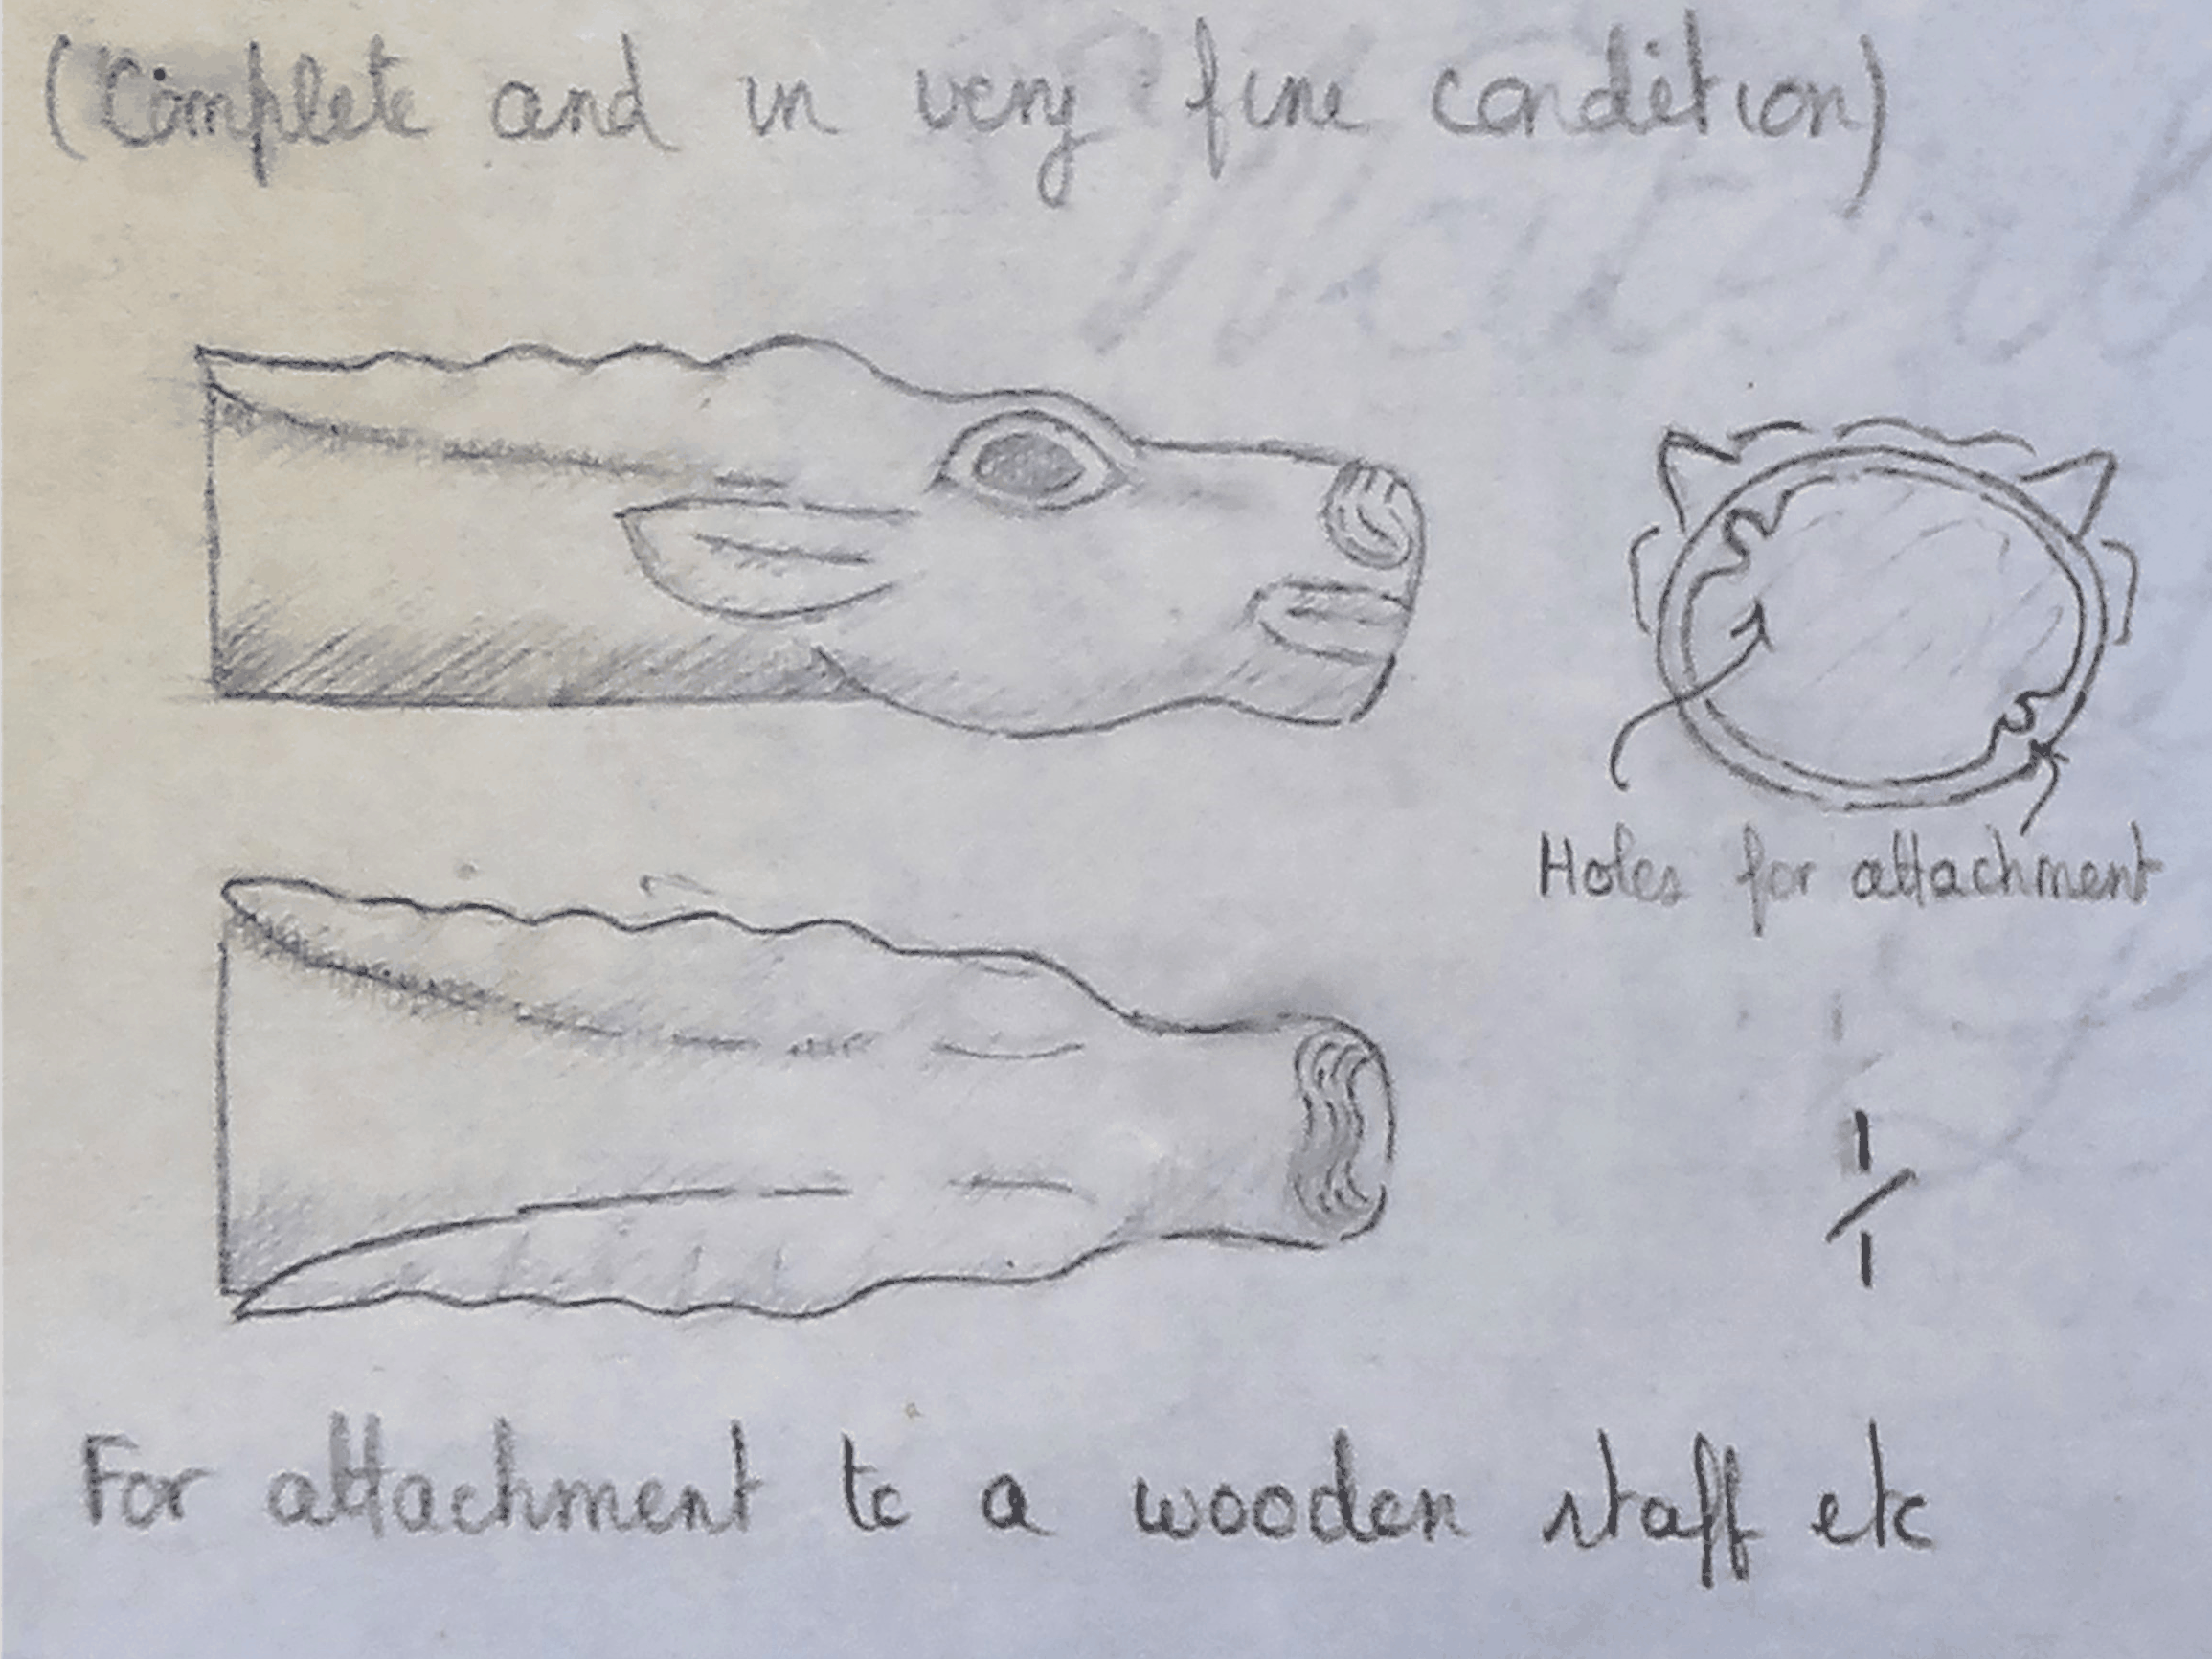 (Complete and in very fine condition)
Holes for attachment
1/1
For attachment to a wooden staff etc